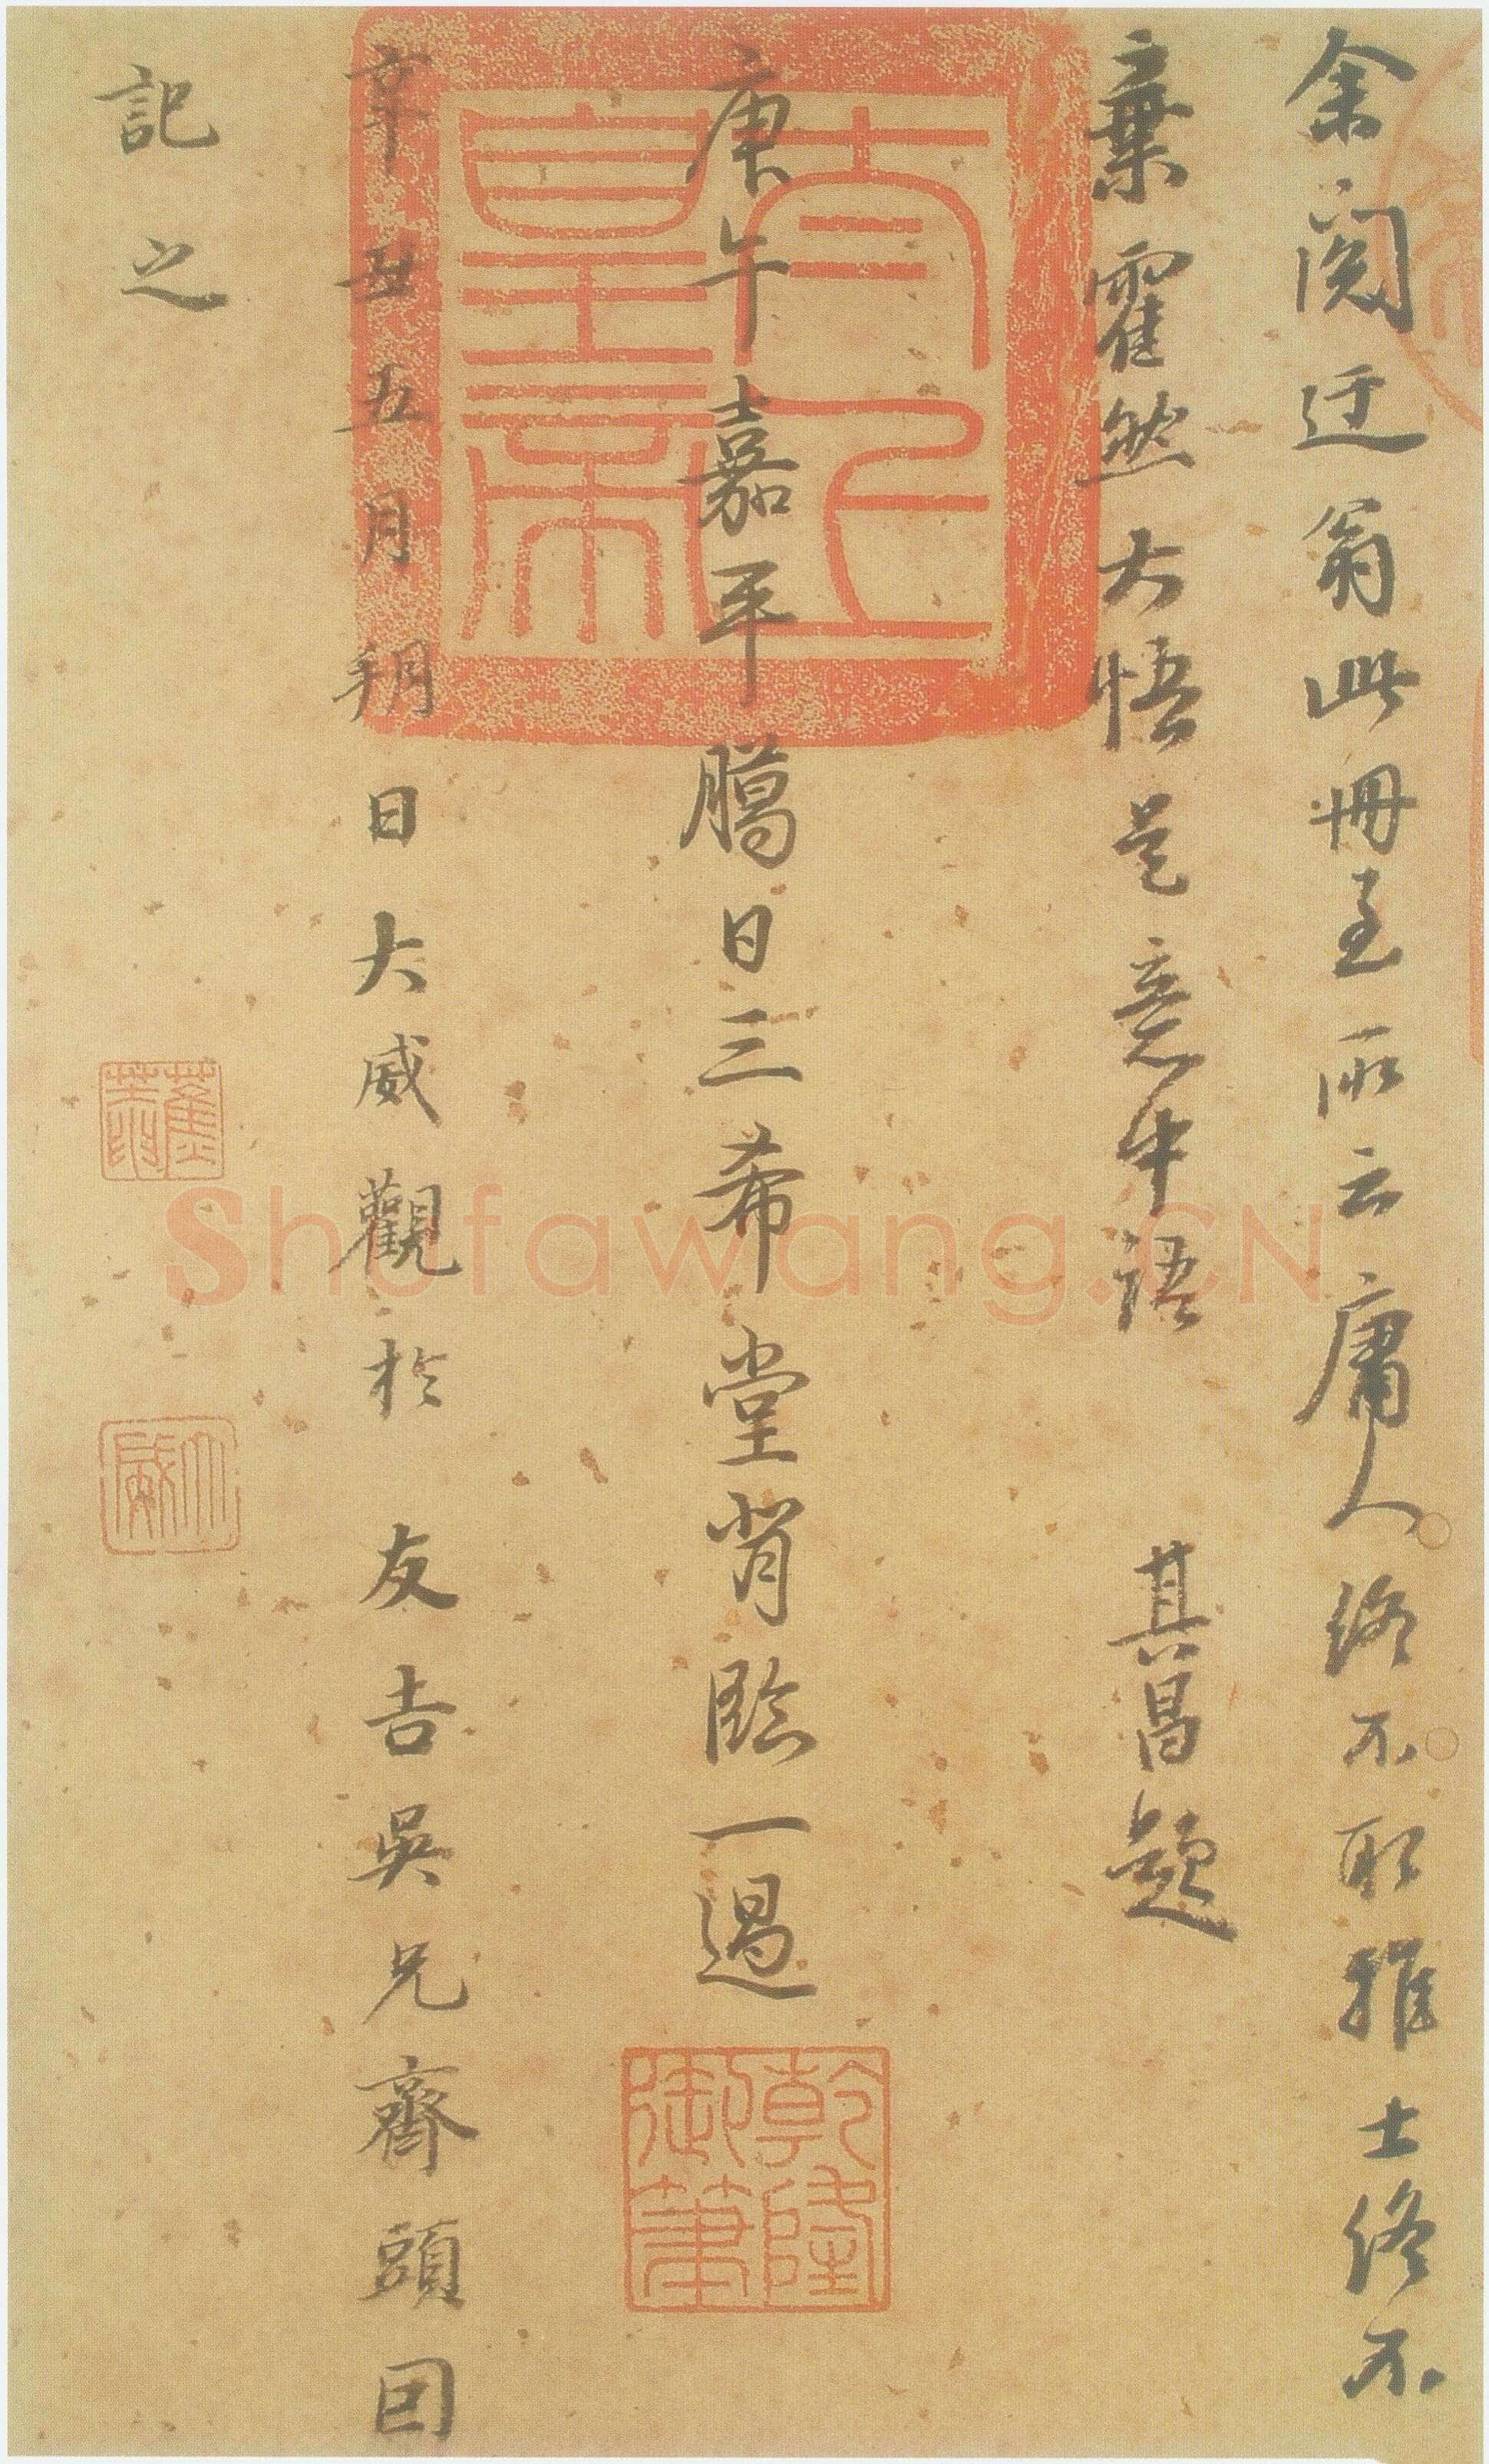 余閱迂翁此冊至所云庸人終不取雅士終不
棄霍然大悟是意中語 其昌題
庚午嘉平臈日三希堂背臨一過
辛丑五月朔日大威觀於 友吉吳兄齋頭因
記之
太上皇帝
乾隆御筆
Shufawang.CN